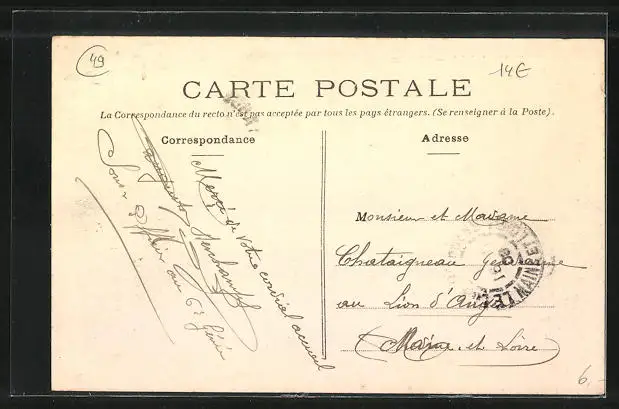 49
14€
CARTE POSTALE
La Correspondance du recto n'est pas acceptée par tous les pays étrangers. (Se renseigner à la Poste).
Correspondance
Adresse
Merci de votre cordial accueil
au 6e Génie
Monsieur et Madame
Chataigneau
au Lion d'Angers
Maine et Loire
MAINE ET L
6.-